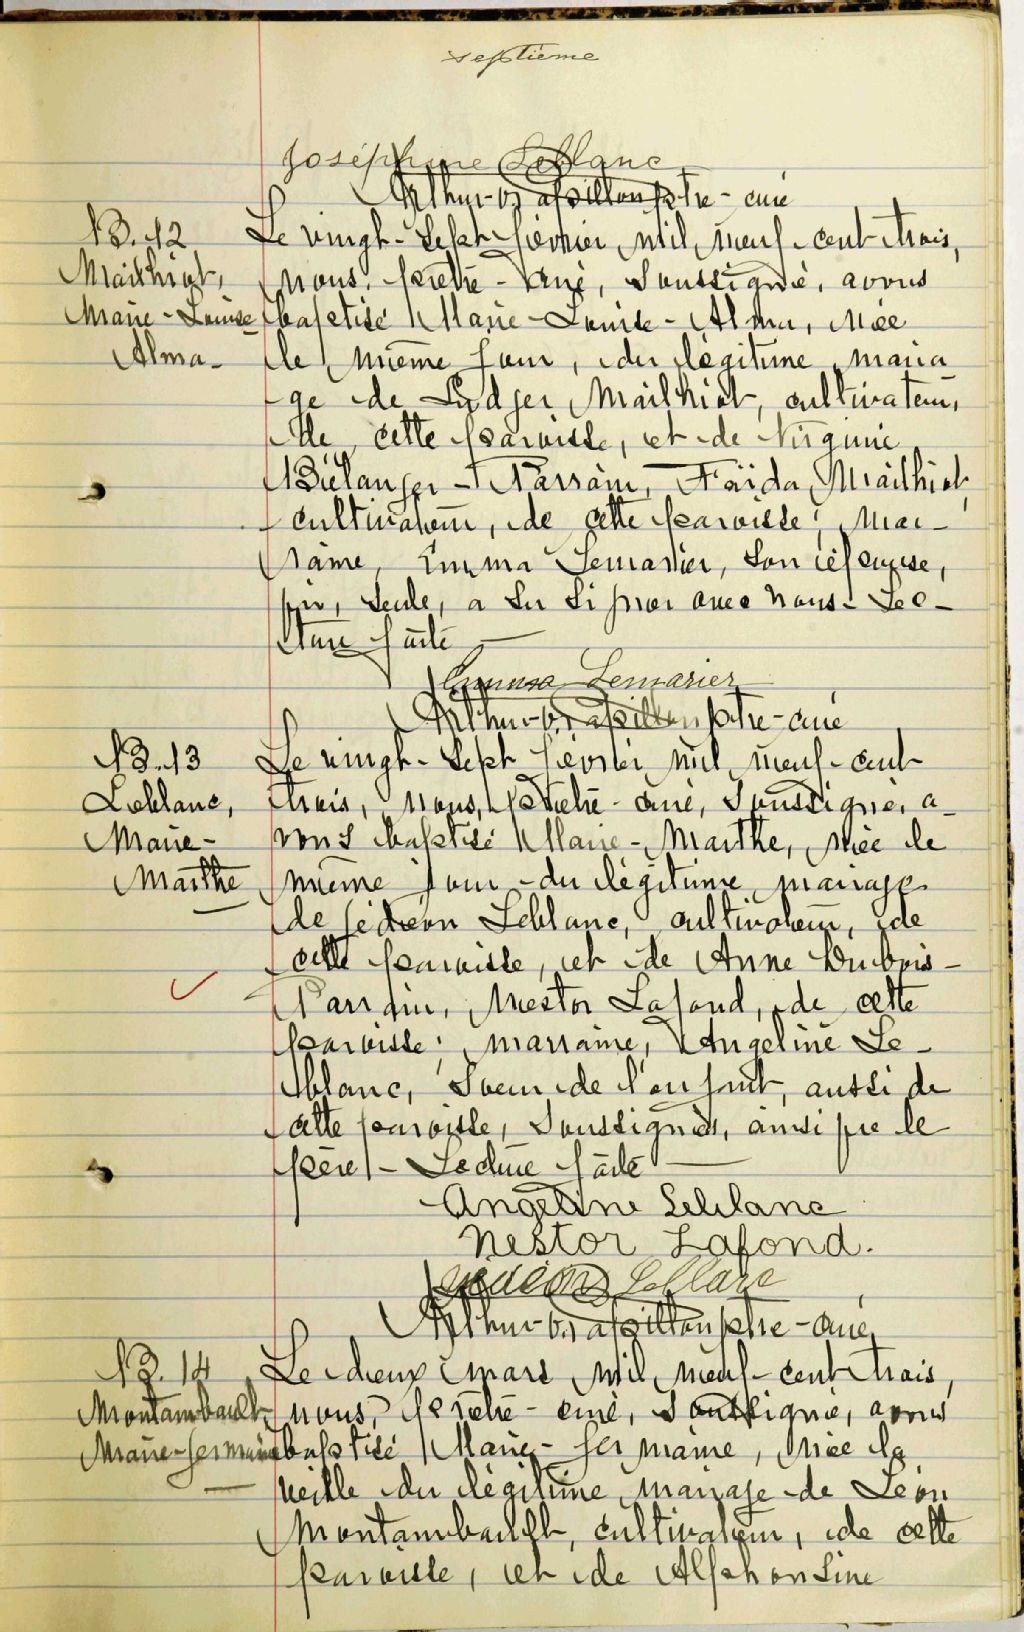 septième
Joséphine Leblanc
Arthur-O. Papillon ptre-curé
B. 12
Mailhiot,
Marie-Louise
Alma-
Le vingt-sept février mil neuf-cent trois,
nous, prêtre-curé, soussigné, avons
baptisé Marie-Louise-Alma, née
le même jour, du légitime maria
-ge de Ludger Mailhiot, cultivateur,
de cette paroisse, et de Virginie
Bélanger - Parrain, Faïda Mailhiot,
cultivateur, de cette paroisse; mar-
raine, Emma Lemarier, son épouse,
qui, seule, a su signer avec nous - Lec-
ture faite
Emma Lemarier
Arthur-O. Papillon ptre-curé
B. 13
Leblanc,
Marie-
Marthe
Le vingt-sept février mil neuf-cent
trois, nous, prêtre-curé, soussigné, a-
vons baptisé Marie-Marthe, née le
même jour du légitime mariage
de Gédéon Leblanc, cultivateur, de
cette paroisse, et de Anne Dubois -
Parrain, Nestor Lafond, de cette
paroisse; marraine, Angéline Le-
blanc, soeur de l'enfant, aussi de
cette paroisse, soussignés, ainsi que le
père - Lecture faite
Angéline Leblanc
Nestor Lafond.
Gédéon Leblanc
Arthur-O. Papillon ptre-curé
B. 14
Montambault,
Marie-Germaine
Le deux mars mil neuf-cent trois,
nous, prêtre-curé, soussigné, avons
baptisé Marie-Germaine, née la
veille du légitime mariage de Léon
Montambault, cultivateur, de cette
paroisse, et de Alphonsine